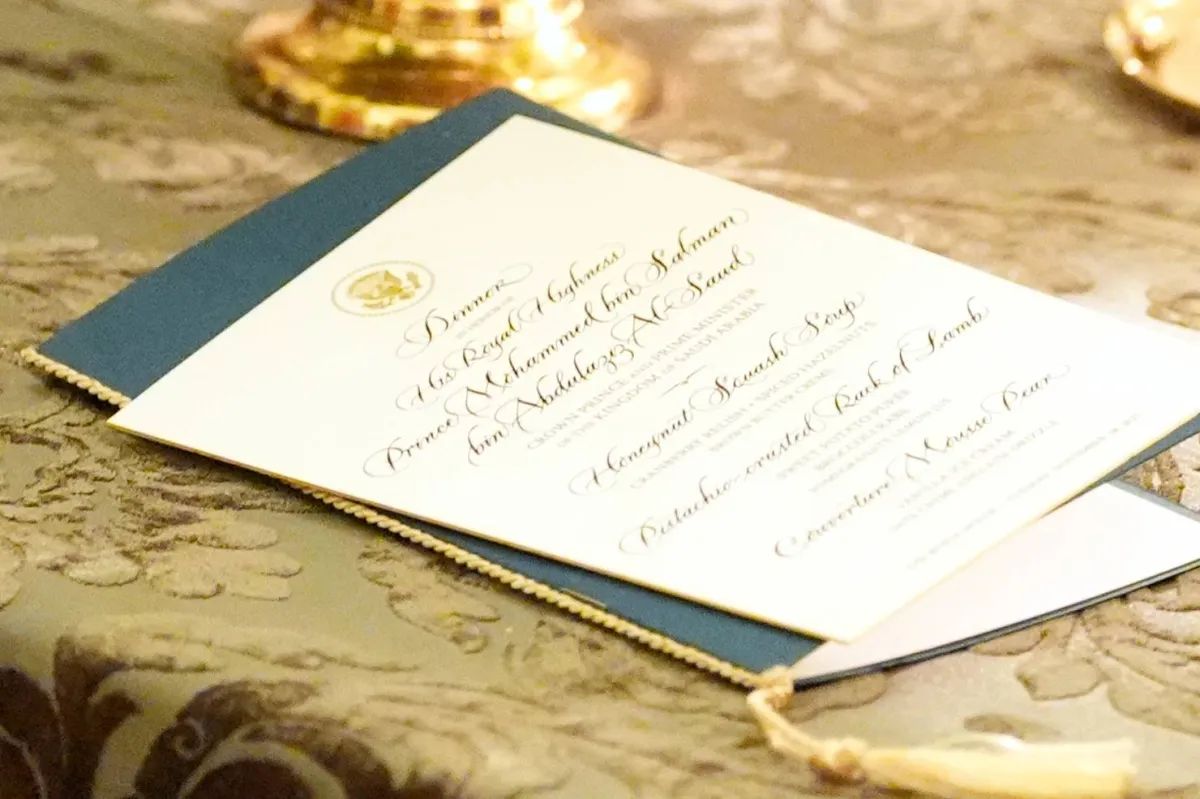 Dinner
IN HONOR OF
His Royal Highness
Prince Mohammed bin Salman
bin Abdulaziz Al-Saud
CROWN PRINCE AND PRIME MINISTER
OF THE KINGDOM OF SAUDI ARABIA
Honeynut Squash Soup
CRANBERRY RELISH • SPICED HAZELNUTS
BROWN BUTTER CRÈME
Pistachio-crusted Rack of Lamb
SWEET POTATO PURÉE
Couverture Mousse Pear
VANILLA ICE CREAM